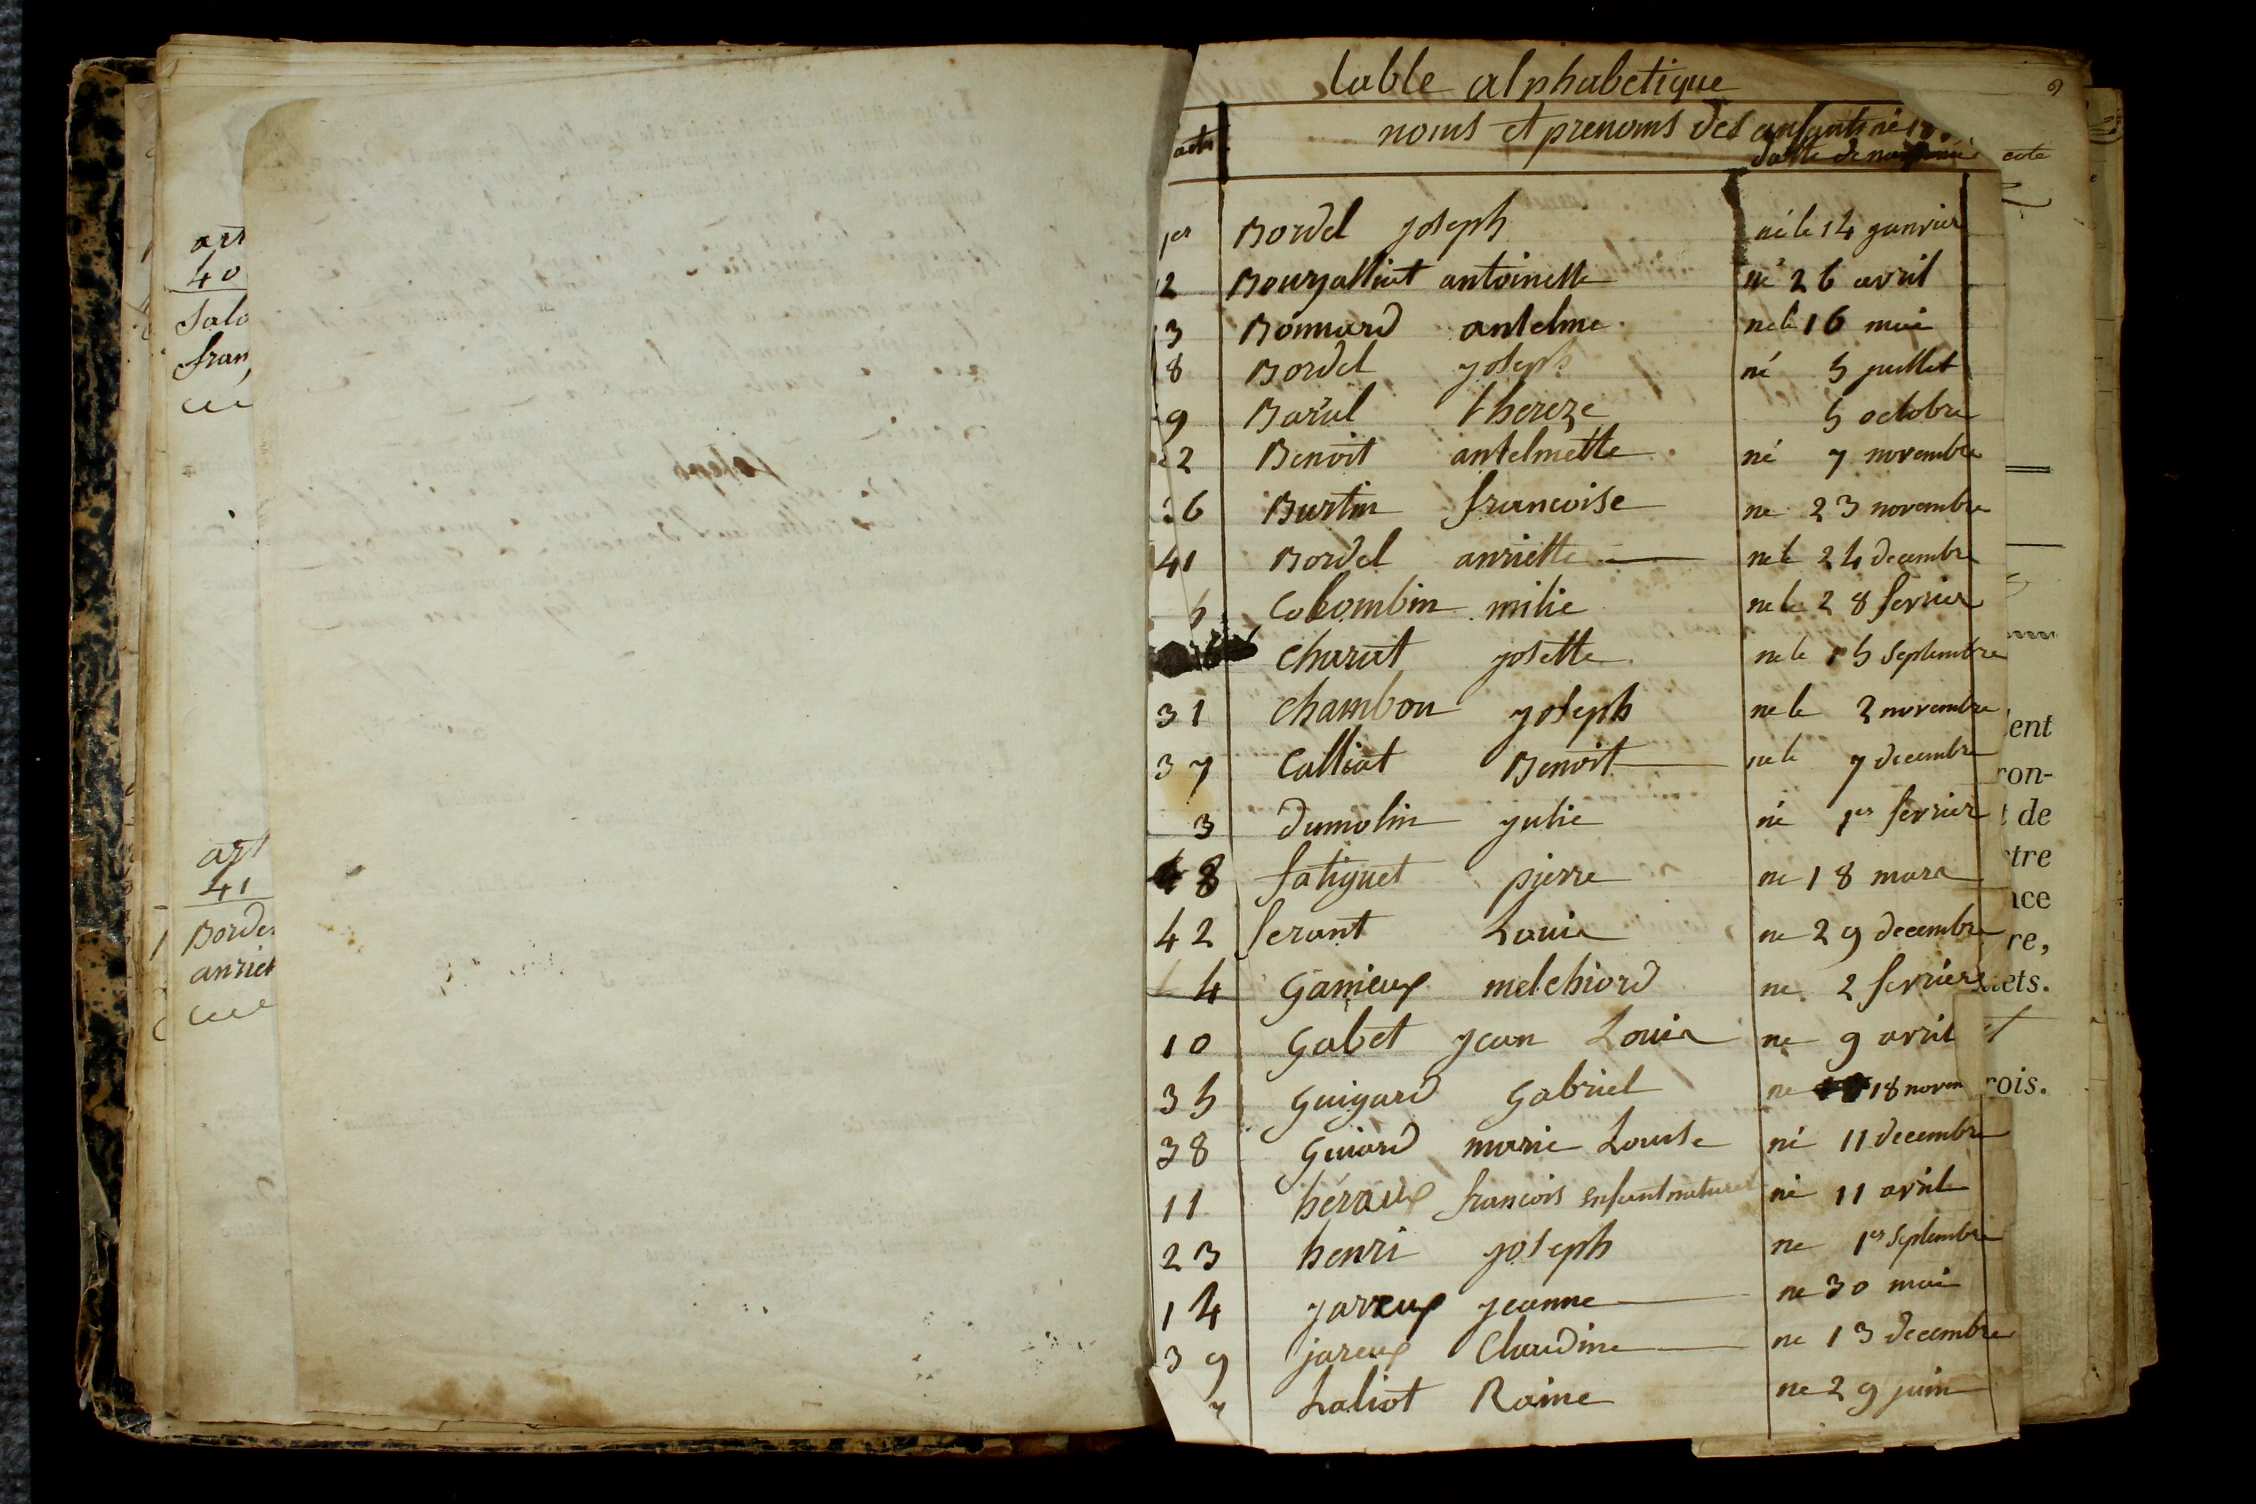 art
40
Salo
fran
art
41
Borde
anriet
table alphabetique
noms et prenoms des enfants né
acte
datte de
1er Bordel joseph né le 14 janvier
12 Bourgalliat antoinette né 26 avril
13 Bonnard antelme né le 16 mai
18 Bordel joseph né 5 juillet
29 Barral thereze 5 octobre
32 Benoit antelmette né 7 novembre
36 Burtin francoise ne 23 novembre
41 Bordel anriette ne le 24 decembre
5 Colombin milie ne le 28 fevrier
Charut josette ne le 15 septembre
31 Chambon joseph ne le 2 novembre
37 Calliat Benoit ne le 7 decembre
3 dumolin julie né 1er fevrier
8 fatiguet pierre ne 18 mars
42 ferant Louis ne 29 decembre
4 Ganieux melchiord ne 2 fevrier
10 Gabet jean Louis ne 9 avril
35 Guigard Gabriel ne 18 novem
38 Guiard marie Louise né 11 decembre
11 héraux francois enfant naturel né 11 avril
23 henri joseph ne 1er septembre
14 jareux jeanne ne 30 mai
39 jareux Claudine ne 13 decembre
7 Laliot Raine ne 29 juin
ent
ron-
de
tre
nce
re,
ets.
rois.